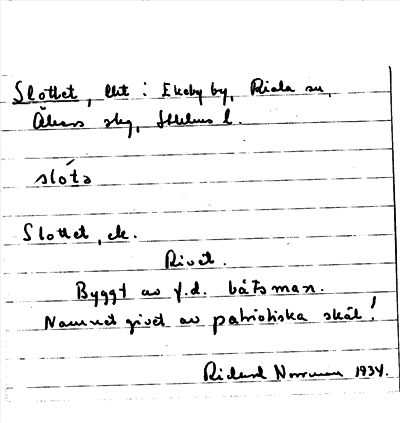 Slottet, lht i Ekeby by, Riala sn,
Åkers skg, Sthlms l.
slótə
Slottet, ck.
Rivet.
Byggt av f.d. båtsman.
Namnet givet av patriotiska skäl!
Rickard 1934.